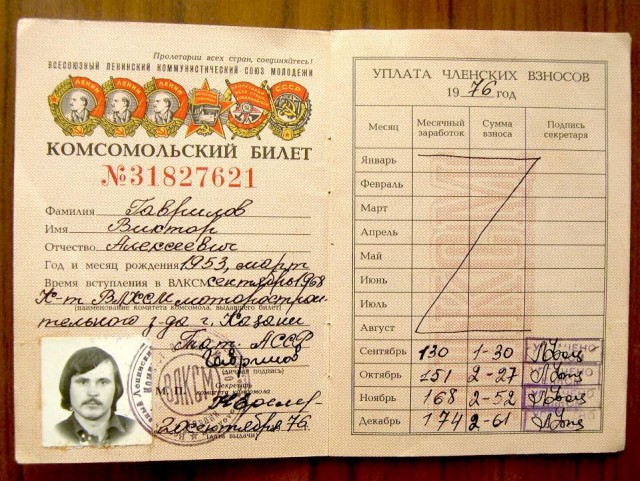 Пролетарии всех стран, соединяйтесь!
ВСЕСОЮЗНЫЙ ЛЕНИНСКИЙ КОММУНИСТИЧЕСКИЙ СОЮЗ МОЛОДЕЖИ
ЛЕНИН ЛЕНИН ЛЕНИН СССР
КОМСОМОЛЬСКИЙ БИЛЕТ
№31827621
Фамилия Гаврилов
Имя Виктор
Отчество Алексеевич
Год и месяц рождения 1953, март
Время вступления в ВЛКСМ сентябрь 1968
К-т ВЛКСМ моторострои-
(наименование комитета комсомола, выдавшего билет)
тельного з-да г. Казани
Тат. АССР
Гаврилов
(личная подпись)
М. П. Секретарь
комитета комсомола
20 сентября 76 г.
(дата выдачи)
ВЛКСМ
УПЛАТА ЧЛЕНСКИХ ВЗНОСОВ
1976 год
Месяц Месячный заработок Сумма взноса Подпись секретаря
Январь
Февраль
Март
Апрель
Май
Июнь
Июль
Август
Сентябрь 130 1-30
Октябрь 151 2-27
Ноябрь 168 2-52
Декабрь 174 2-61